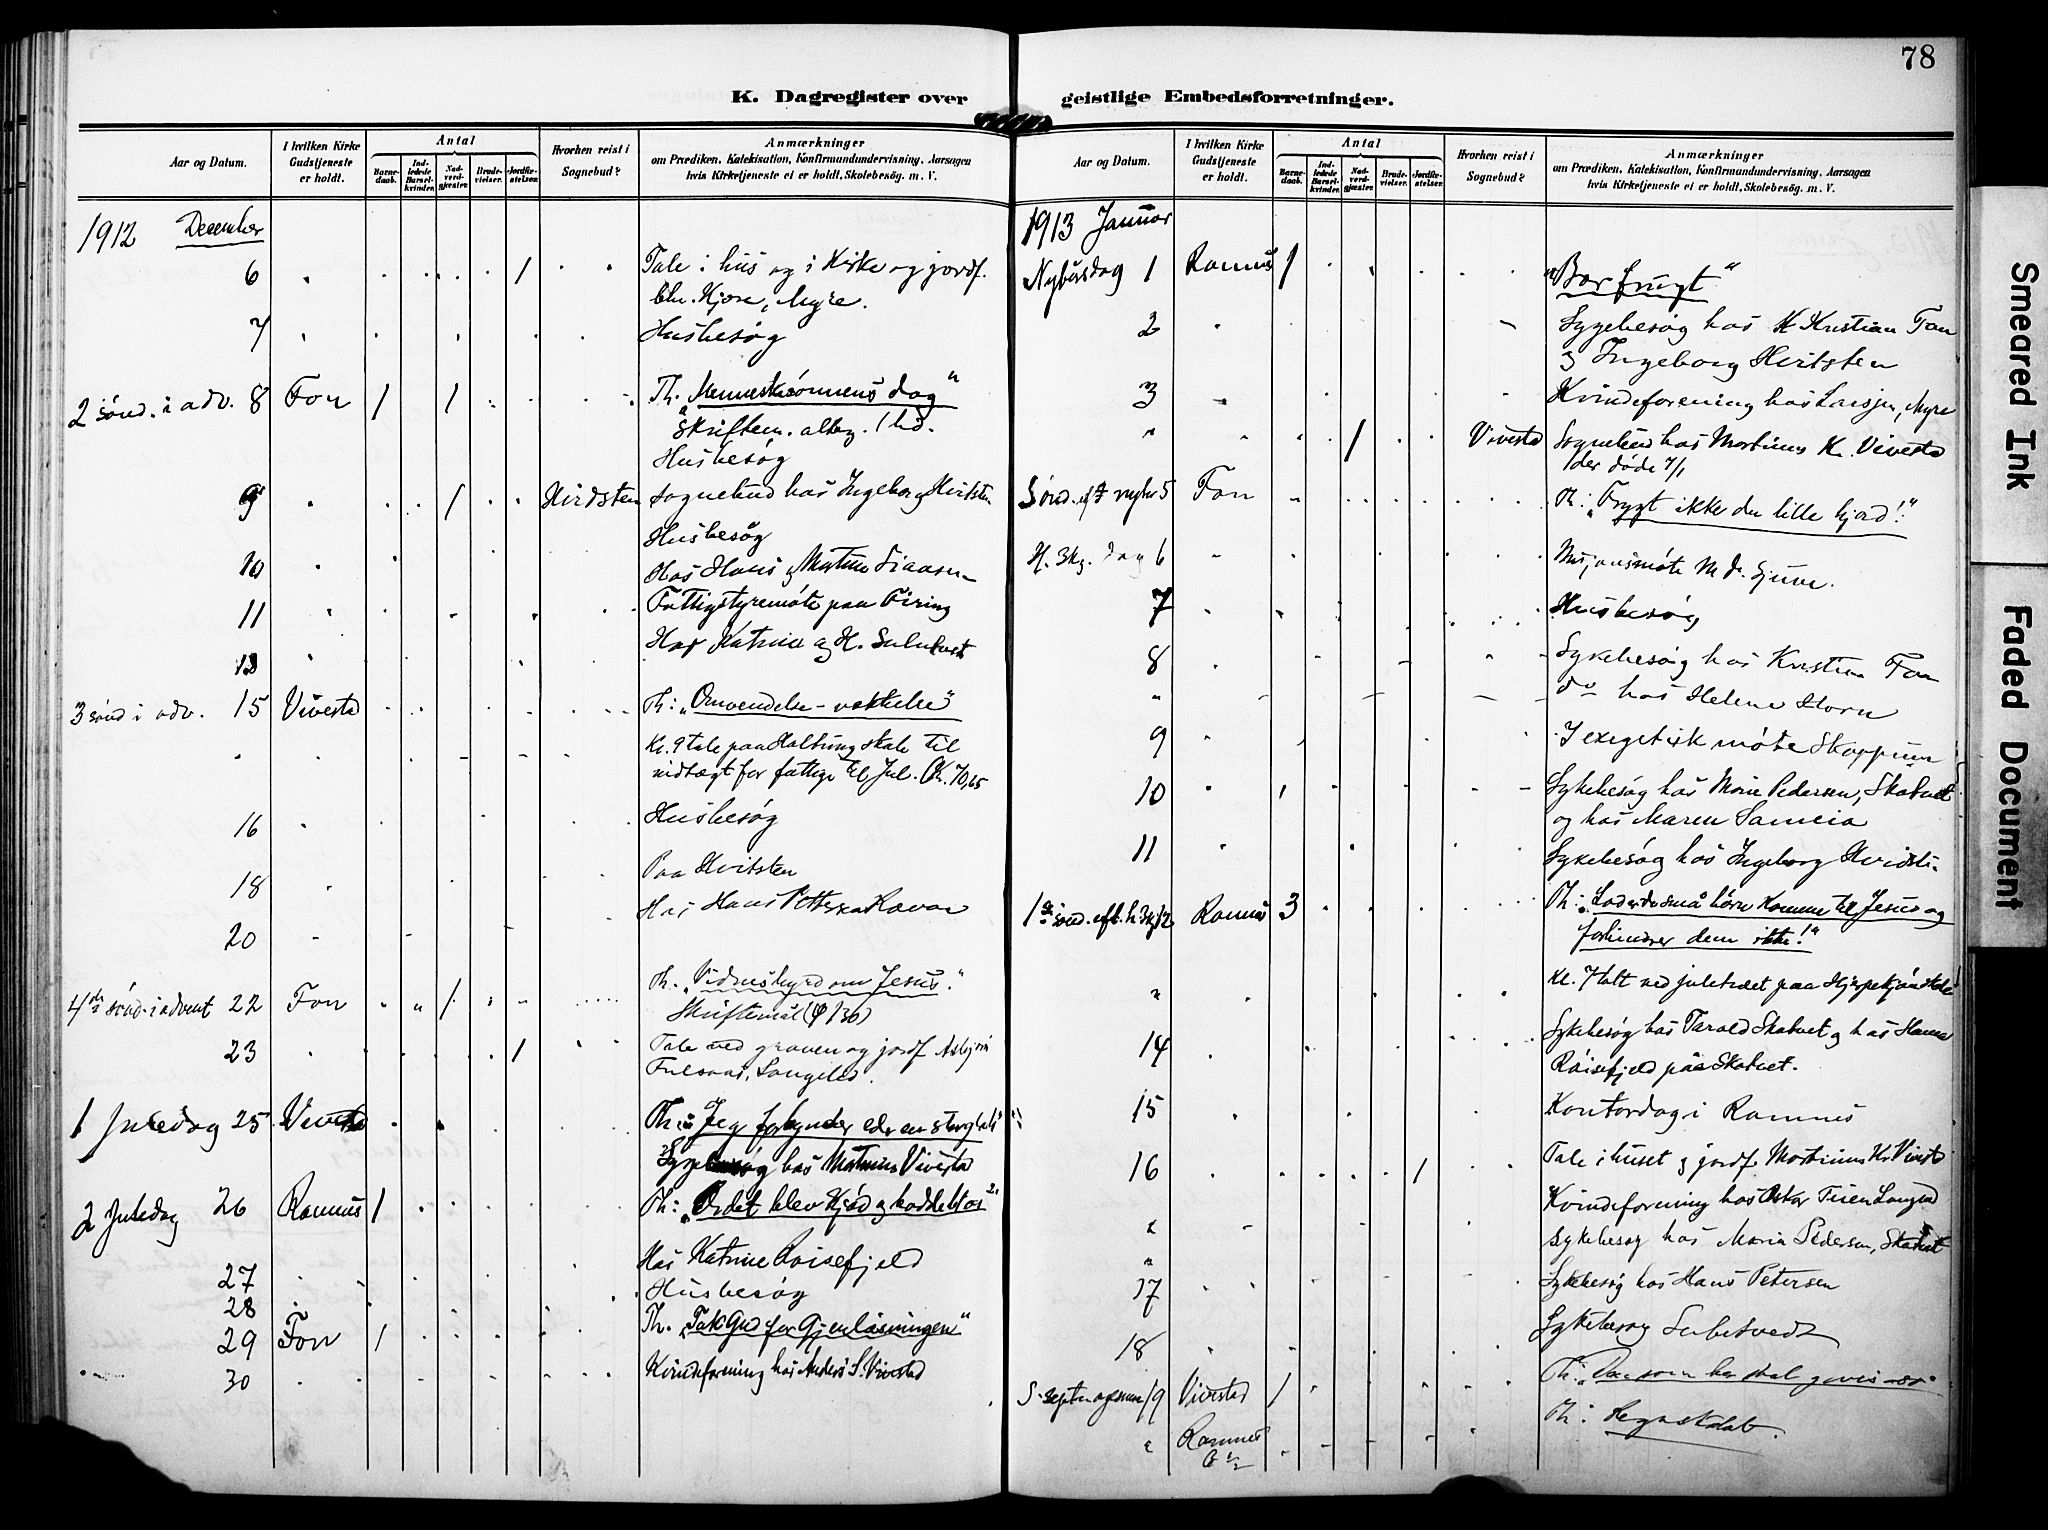 78
K. Dagregister over geistlige Embedsforretninger.
Aar og Datum.
I hvilken Kirke Gudstjeneste er holdt.
Antal
Barnedaab.
Indledede Barselkvinder.
Nadverdgjæster.
Brudevielser.
Jordfæstelser.
Hvorhen reist i Sognebud?
Anmærkninger
om Prædiken, Katekisation, Konfirmandundervisning, Aarsagen
hvis Kirketjeneste ei er holdt, Skolebesög. m. V.
1912 December
6 1 Tale i hus og i Kirke og jordf.
Kjøse, Myre.
7 Husbesøg
2 sönd. i adv. 8 Fon 1 1 Th. „Menneskesönnens dag"
skriftem. alterg.
Husbesøg
9 1 Hirdsten Sognebud hos Ingeborg Hvitsten
Husbesøg
10 Hos Hans og
11 Fattigstyremöte paa Firing
13 Hos Katrine og H.
3 sönd i adv. 15 Vivesta Th: „Omvendelse - vækkelse"
Kl. 9 tale paa skole til
indtægt for fattige til Jul. Kr. 70,65
16 Husbesøg
18 Paa Hvitsten
20 Hos Hans
4de sönd. i advent 22 Fon 1 Th. „Vidnesbyrd om Jesus."
Skriftemål
23 1 Tale ved graven og jordf.
1 Juledag 25 Vivesta Th: „Jeg forkynder eder en stor glæde"
Sygebesøg hos Vivesta
2 Juledag 26 Ramnes 1 Th: „Ordet blev Kjød og boede bl. os"
27 Hos Katrine Roisefjeld
28 Husbesøg
29 Fon 1 Th. „Tak Gud for Gjenløsningen"
30 Kvindeforening hos Anders S. Vivestad
Aar og Datum.
I hvilken Kirke Gudstjeneste er holdt.
Antal
Barnedaab.
Indledede Barselkvinder.
Nadverdgjæster.
Brudevielser.
Jordfæstelser.
Hvorhen reist i Sognebud?
Anmærkninger
om Prædiken, Katekisation, Konfirmandundervisning, Aarsagen
hvis Kirketjeneste ei er holdt, Skolebesög. m. V.
1913 Januar
Nytårsdag 1 Ramnes 1 „Bær frugt"
2 Sygebesøg hos Kristian Fon
og Ingeborg Hvitsten
3 Kvindeforening hos Larsen, Myre
" 1 Vivesta Sognebud hos Martinus K. Vivesta
der döde 7/1
Sönd. eft nytår 5 Fon Th: „Frygt ikke du lille hjord!"
H. 3 kg. dag 6 Misjonsmöte
7 Husbesøg
8 Sykebesøg hos Kristian Fon
" do hos Helene Horn
9 I exegetisk möte Skoppum
10 Sykebesøg hos Marie Pedersen, Skatvet
og hos Maren
11 Sykebesøg hos Ingeborg
1ste sönd. eft. h. 3 kg. 12 Ramnes 3 Th: „Lad de små börn komme til Jesus og
forhindrer dem ikke!"
" Kl. 7 talt ved juletræet paa
14 Sykebesøg hos Tarald Skatvet og hos Hanna
Röisefjeld på Skatvet.
15 Kontordag i Ramnes
16 1 Tale i huset og jordf. Martinus K. Vivesta
" Kvindeforening hos
" Sykebesøg hos Maria Pedersen, Skatvet
17 Sykebesøg hos Hans Petersen
18 Sykebesøg
S. septuagesima 19 Vivestad 1 Th: „Den som har skal gives
" Ramnes Th: Regnskab.
Smeared Ink
Faded Document